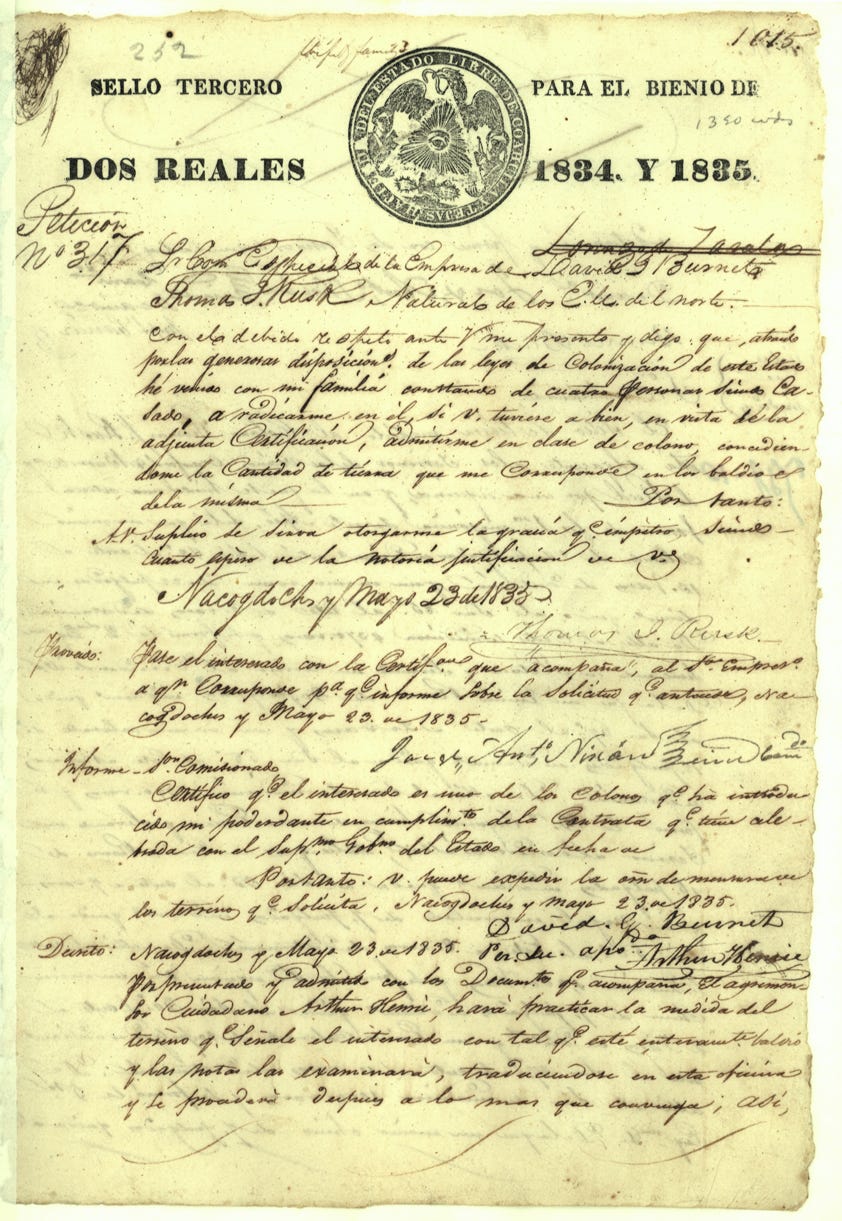 252
1015.
SELLO TERCERO
PARA EL BIENIO DE
DOS REALES
1834. Y 1835.
DEL ESTADO LIBRE DE COAHUILA Y TEJAS
Petición
Nº 317
Sr Com Especial de la Empresa de David G Burnet
Thomas J. Rusk Natural de los E. U. del norte.
con el debido respeto ante V me presento y digo: que, atraido
por las generosas disposicions. de las leyes de Colonización de este Estado
hé venido con mi familia constando de cuatro Personas siendo Ca-
sado, a radicarme en el si V. tuviere a bien, en vista de la
adjunta Certificación, admitirme en clase de colono, concedien-
dome la Cantidad de tierra que me Corresponde en los baldios
de la misma Por tanto:
A V. Suplico se sirva otorgarme la gracia q.e impetro siendo
cuanto espero de la notoria justificacion de V.
Nacogdoches y Mayo 23 de 1835
Thomas J. Rusk.
Proveido:
Pase el interesado con la Certif.on que acompaña, al Sor Empres.o
a q.n Corresponde p.a q.e informe sobre la solicitud q.e antecede, Na-
cogdoches y Mayo 23. de 1835-
Jorge Ant.o Nixon
Informe - Sor Comisionado
Certifico q.e el interesado es uno de los Colonos q.e ha introdu-
cido mi poderdante en cumplim.to de la Contrata q.e tiene cele-
brada con el Sup.mo Gob.no del Estado en fecha de
Por tanto: V. puede expedir la orn de mensura de
los terrenos q.e Solicita, Nacogdoches y mayo 23. de 1835.
David. G. Burnet
Decreto:
Nacogdoches y Mayo 23. de 1835. Por su apo.do Arthur Henrie
Por presentado y admitido con los Docum.tos q.e acompaña, El agrimen-
sor Ciudadano Arthur Henrie, hará practicar la medida del
terreno q.e Señale el interesado con tal q.e esté enteramte baldio
y las notas las examinará, traduciendose en esta oficina
y se procederá despues a lo mas que convenga; así,